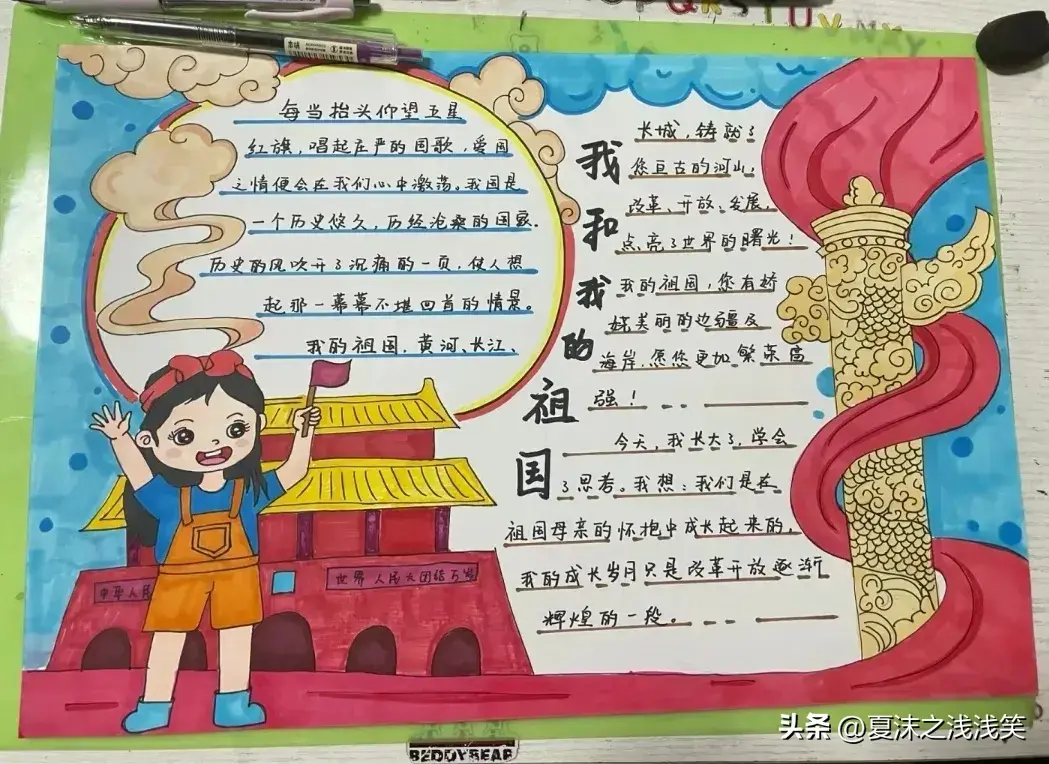 每当抬头仰望五星
红旗，唱起庄严的国歌，爱国
之情便会在我们心中激荡。我国是
一个历史悠久，历经沧桑的国家.
历史的风吹开了沉痛的一页，使人想
起那一幕幕不堪回首的情景。
我的祖国，黄河、长江、
我和我的祖国
长城，铸就了
您亘古的河山，
改革、开放、发展，
点亮了世界的曙光！
我的祖国，您有娇
娆美丽的边疆及
海岸.愿您更加繁荣富
强！
今天，我长大了，学会
了思考。我想：我们是在
祖国母亲的怀抱中成长起来的，
我的成长岁月只是改革开放逐渐
辉煌的一段。
中华人民
世界人民大团结万岁
BEDDYBEAR
头条 @夏沫之浅浅笑